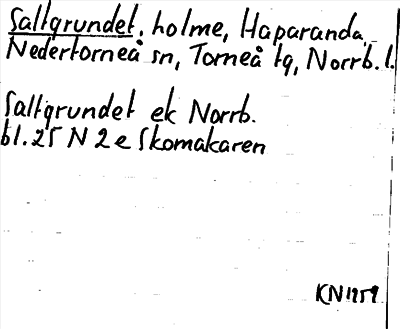 Saltgrundet, holme, Haparanda-
Nedertorneå sn, Torneå tg, Norrb. l.
Saltgrundet ek Norrb.
bl. 25 N 2 e Skomakaren
KN 1959